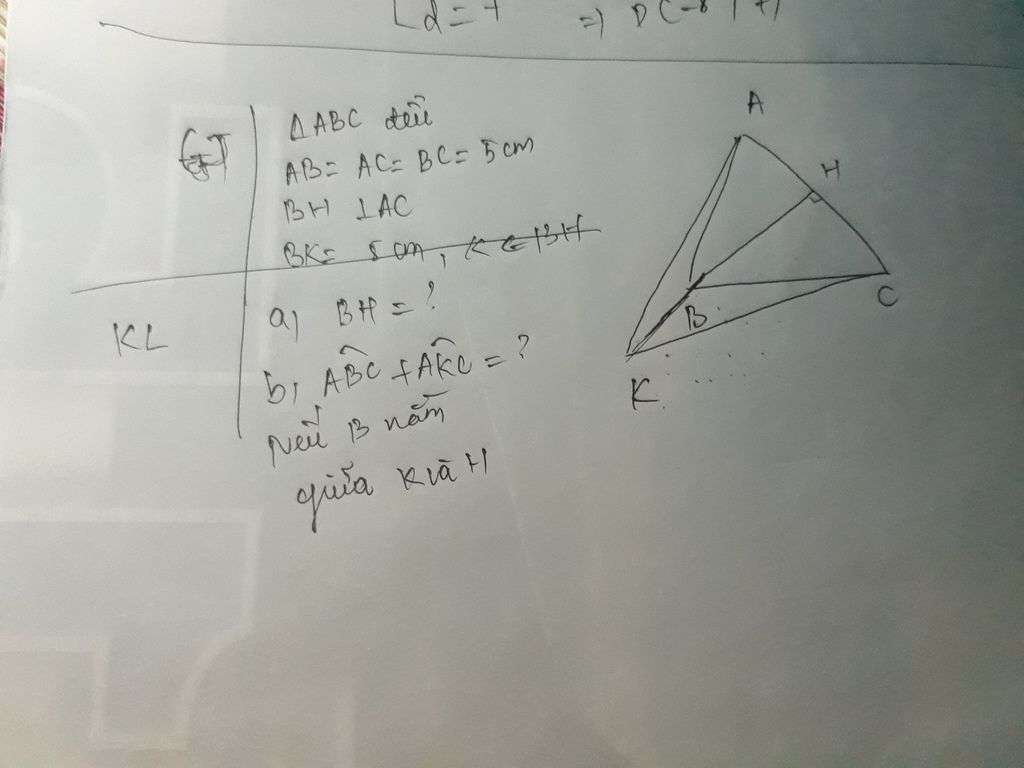 =)
GT
ΔABC đều
AB= AC= BC= 5cm
BH ⊥AC
BK= 5cm, K ∈ BH
KL
a, BH = ?
b, ABC + AKC = ?
Nếu B nằm
giữa K và H
A
H
B
C
K